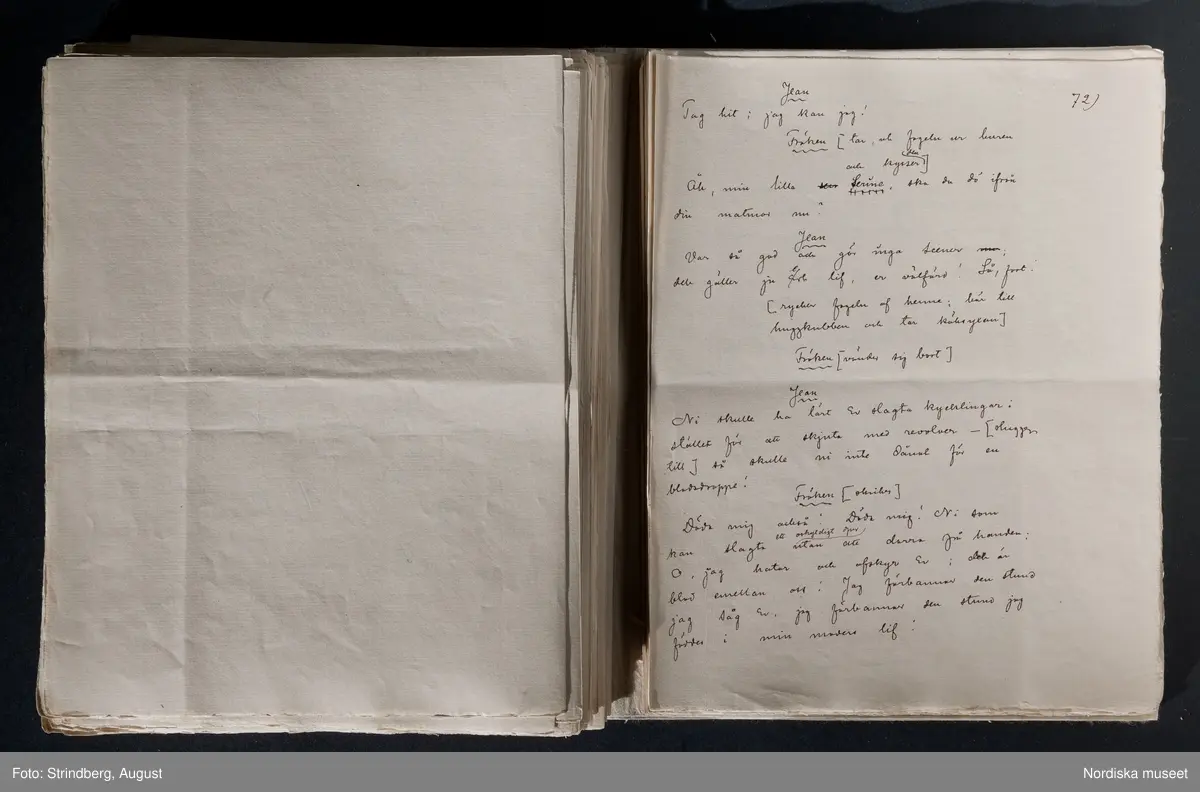 72)
Jean
Tag hit; jag kan jag!
Fröken [tar, ut fogeln ur buren
och kysser den]
Åh, min lilla Serine, ska du dö ifrån
din matmor nu?
Jean
Var så god och gör inga scener;
det gäller ju Ert lif, er välfärd! Så, fort!
[rycker fogeln af henne; bär till
huggkubben och tar köksyxan]
Fröken [vänder sig bort]
Jean
Ni skulle ha lärt Er slagta kycklingar i
stället för att skjuta med revolver – [hugger
till] så skulle ni inte dånat för en
blodsdroppe!
Fröken [skriker]
Döda mig också! Döda mig! Ni som
kan slagta ett oskyldigt djur utan att darra på handen;
O, jag hatar och afskyr Er; det är
blod emellan oss! Jag förbannar den stund
jag såg Er, jag förbannar den stund jag
föddes i min moders lif!
Foto: Strindberg, August
Nordiska museet